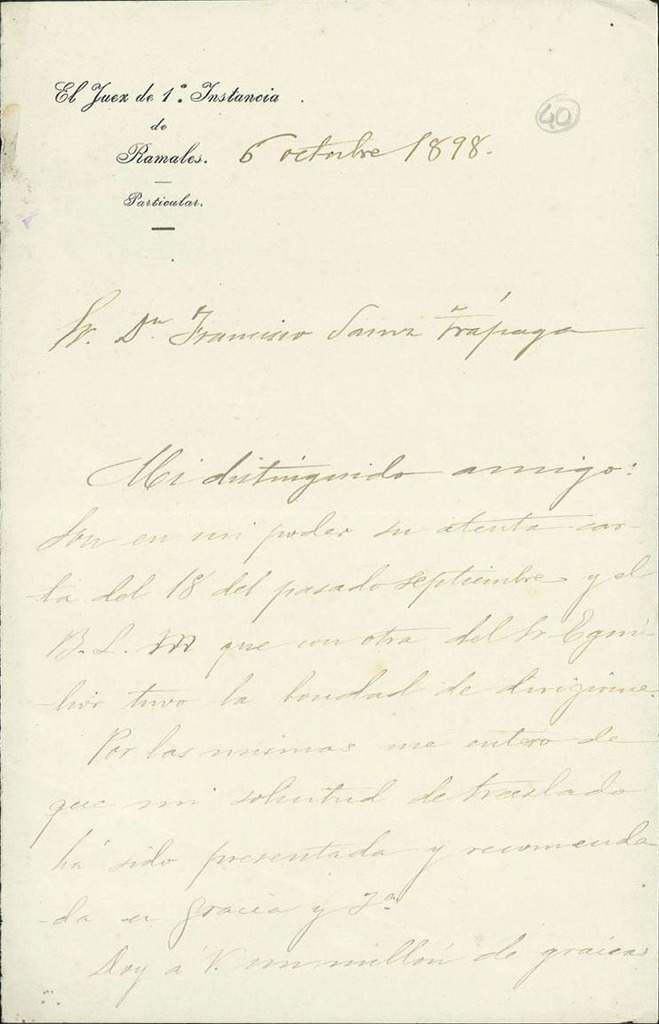 El Juez de 1.ª Instancia
de
Ramales.
Particular.
40
6 octubre 1898.
Sr. Dn Francisco Sainz Trápaga
Mi distinguido amigo:
Son en mi poder su atenta car-
ta del 18 del pasado septiembre y el
B. L. M que con otra del Sr Egui-
lior tuvo la bondad de dirigirme.
Por las mismas me entero de
que mi solicitud de traslado
há sido presentada y recomenda-
da en Gracia y Jª
Doy á V. un millón de graicas